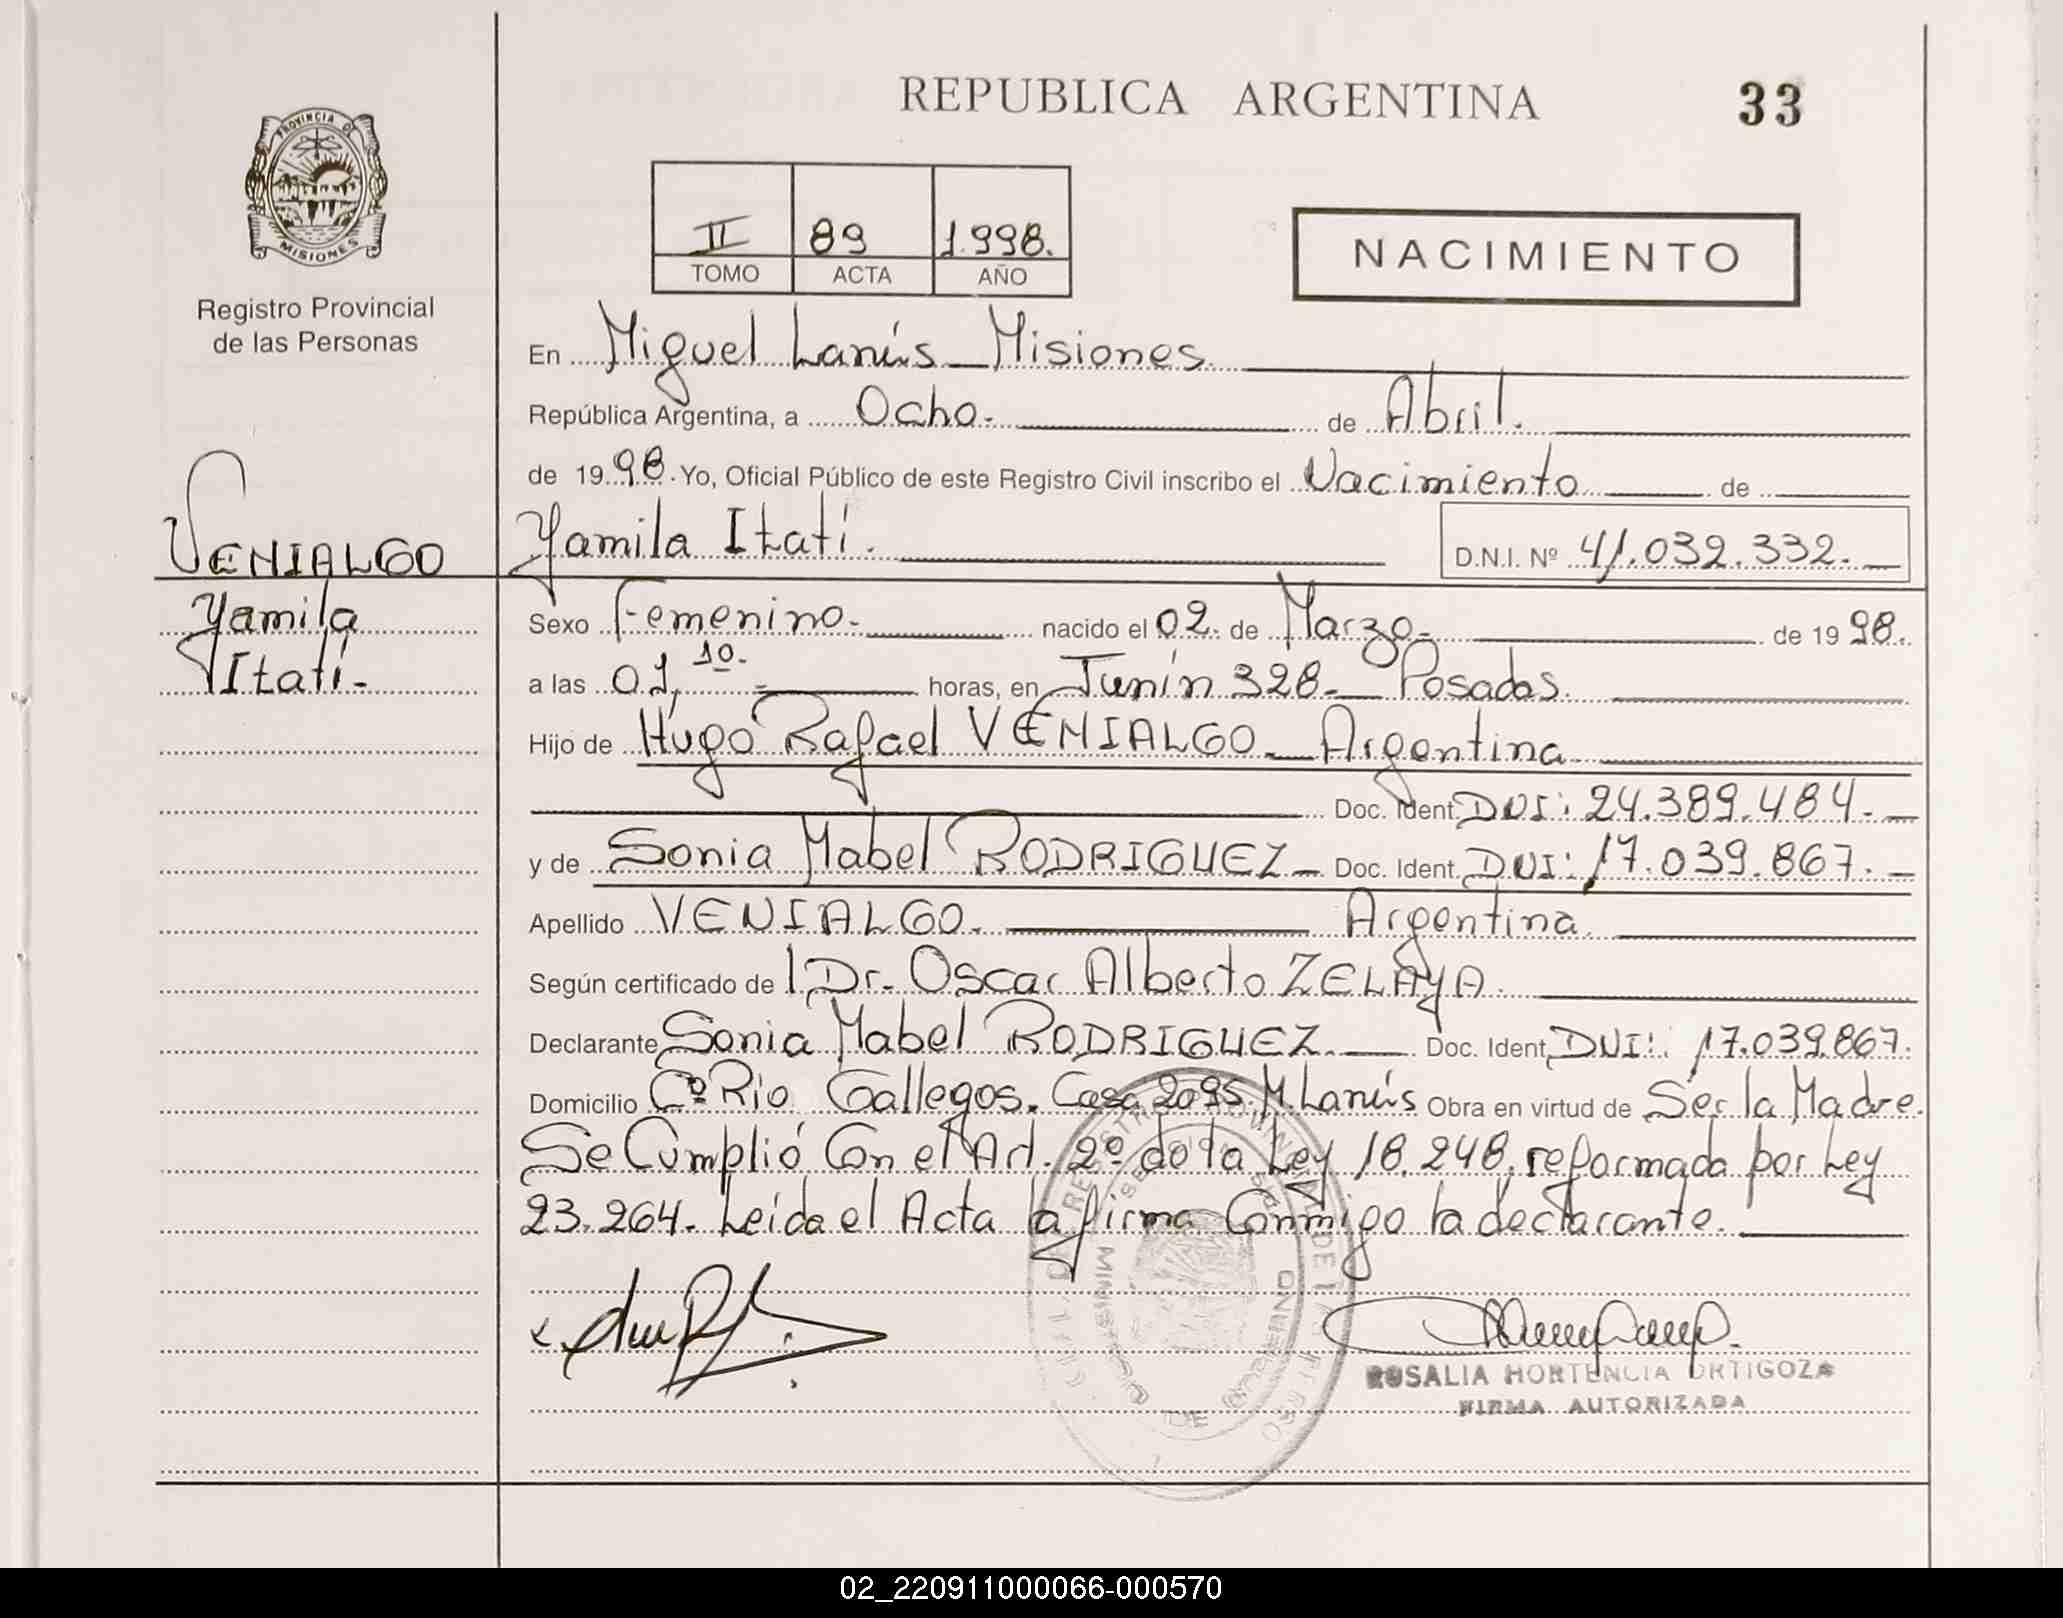 REPUBLICA ARGENTINA 33
PROVINCIA DE
MISIONES
Registro Provincial
de las Personas
II 89 1.998.
TOMO ACTA AÑO
NACIMIENTO
En Miguel Lanús Misiones.
República Argentina, a Ocho. de Abril.
de 1998. Yo, Oficial Público de este Registro Civil inscribo el Nacimiento de
VENIALGO Yamila Itatí. D.N.I. Nº 41.032.332.
Yamila Sexo Femenino. nacido el 02. de Marzo de 1998.
Itatí. a las 01,10. horas, en Junín 328. Posadas.
Hijo de Hugo Rafael VENIALGO. Argentina
Doc. Ident. DNI: 24.389.484.
y de Sonia Mabel RODRIGUEZ Doc. Ident. DNI: 17.039.867.
Apellido VENIALGO. Argentina.
Según certificado de l Dr. Oscar Alberto ZELAYA.
Declarante Sonia Mabel RODRIGUEZ. Doc. Ident. DNI: 17.039.867.
Domicilio Cº Rio Gallegos. Casa 2095. M. Lanús Obra en virtud de Ser la Madre.
Se Cumplió Con el Art. 2º de la Ley 18.248, reformada por Ley
23.264. Leída el Acta la firma Conmigo la declarante.
ROSALIA HORTENCIA ORTIGOZA
FIRMA AUTORIZADA
MINISTERIO DE GOBIERNO
02_220911000066-000570